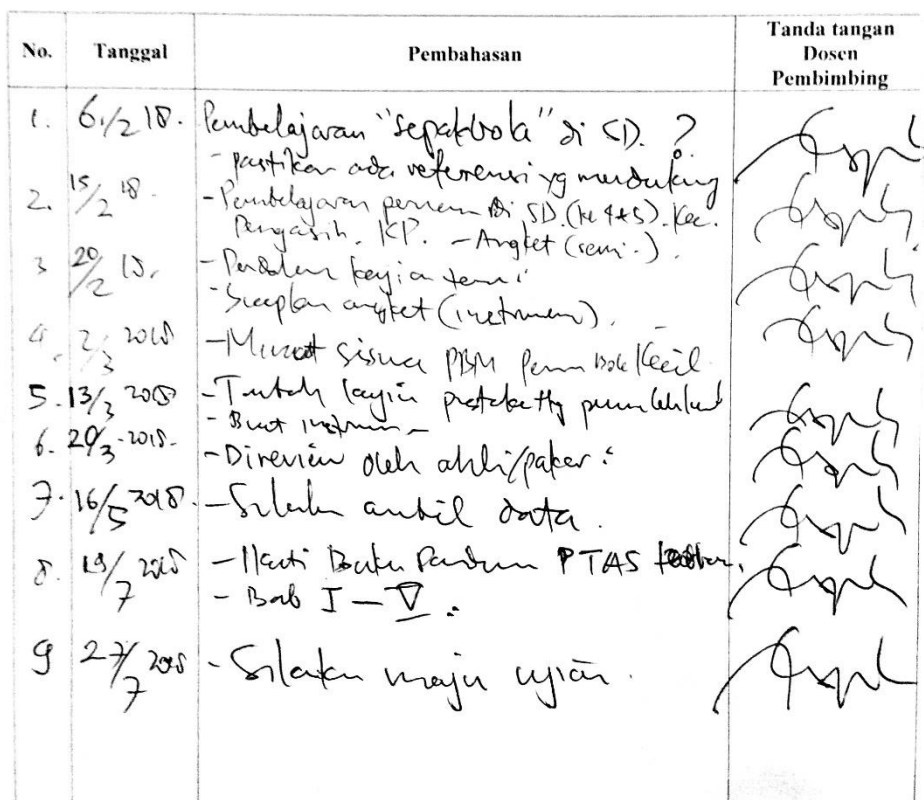 No. Tanggal Pembahasan Tanda tangan
Dosen
Pembimbing
1. 6/2 18. Pembelajaran "sepakbola" di SD. ?
- pastikan ada referensi yg mendukung
2. 15/2 18. - Pembelajaran di SD. (ke 4+5). Kec.
Pengasih. KP. - Angket (semi.)
3 20/2 18. - kajian teori
- Siapkan angket (instrumen).
4. 2/3 2018 - siswa PBM Bola Kecil
5. 13/3 2018 - kajian
- Buat instrumen
6. 20/3-2018. - Direview oleh ahli/pakar:
7. 16/5 2018. - Silakan ambil data.
8. 19/7 2018 - Buku Panduan PTAS
- Bab I - V.
9 27/7 2018 - Silakan maju ujian.